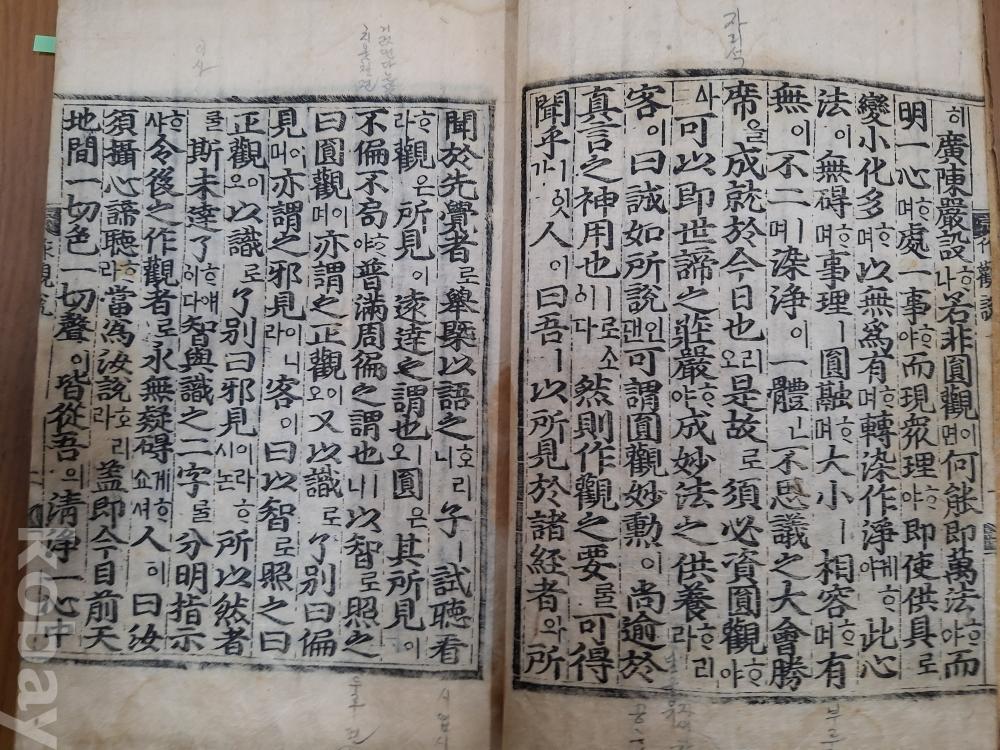 자리석
히廣陳嚴設ᄒᆞ나若非圓觀이며何能即萬法ᄒᆞ야而
明一心ᄒᆞ며處一事ᄒᆞ야而現衆理ᄒᆞ야即使供具로
變小化多ᄒᆞ며以無爲有ᄒᆞ며轉染作淨ᄒᆞ게ᄒᆞ야此心
法이無碍ᄒᆞ며事理ㅣ圓融ᄒᆞ며大小ㅣ相容ᄒᆞ며有
無이不二ㅣ며染淨이一體ㄴ不思議之大會勝
席을成就於今日也오리是故로須必資圓觀ᄒᆞ야
사可以即世諦之莊嚴ᄒᆞ야成妙法之供養ᄒᆞ리라
客이曰誠如所說인댄可謂圓觀妙勳이尚逾於
眞言之神用也ㅣ로소이다然則作觀之要ᄅᆞᆯ可得
聞乎ㅣ잇가人이曰吾ㅣ以所見於諸経者와所
聞於先覺者로擧槩以語之호리니子ㅣ試聽看
ᄒᆞ라觀은所見이遠達之謂也오圓은其所見이
不偏不局ᄒᆞ야普滿周徧之謂也ㅣ니以智로照之
曰圓觀이며亦謂之正觀이오又以識로了別曰偏
見이며亦謂之邪見이니라客이曰以智로照之曰
正觀이오以識로了別曰邪見이라ᄒᆞ시논所以然者
ᄅᆞᆯ斯未達了ᄒᆞ얘이다智與識之二字ᄅᆞᆯ分明指示
ᄒᆞ샤令後之作觀者로永無疑碍케ᄒᆞ쇼셔人이曰汝
須攝心諦聽ᄒᆞ라當爲汝說호리라盖即今目前天
地間一切色一切聲이皆從吾의淸淨一心中
kobay